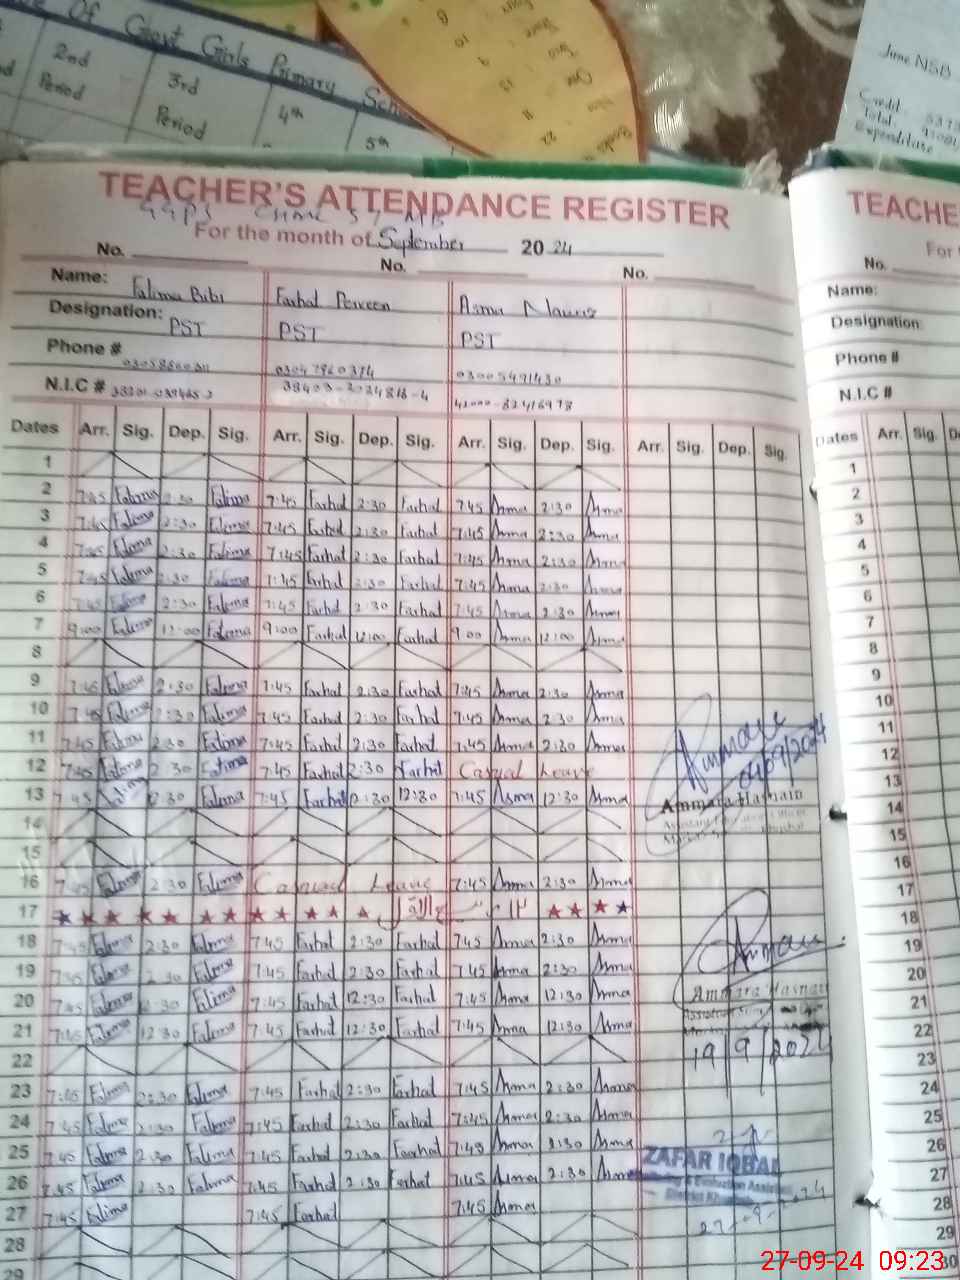 Of Govt Girls Primary Scho
2nd Period
3rd Period
4th
5th
June NSB
Credit
Total
Expenditure
TEACHER'S ATTENDANCE REGISTER
GGPS
For the month of September 2024
No. No. No.
Name: Fatima Bibi Farhat Perveen Asma Nawaz
Designation: PST PST PST
Phone # 03047960374 03005491430
N.I.C #
Dates Arr. Sig. Dep. Sig. Arr. Sig. Dep. Sig. Arr. Sig. Dep. Sig. Arr. Sig. Dep. Sig.
1
2 7:45 Fatima 2:30 Fatima 7:45 Farhat 2:30 Farhat 7:45 Asma 2:30 Asma
3 7:45 Fatima 2:30 Fatima 7:45 Farhat 2:30 Farhat 7:45 Asma 2:30 Asma
4 7:45 Fatima 2:30 Fatima 7:45 Farhat 2:30 Farhat 7:45 Asma 2:30 Asma
5 7:45 Fatima 2:30 Fatima 7:45 Farhat 2:30 Farhat 7:45 Asma 2:30 Asma
6 7:45 Fatima 2:30 Fatima 7:45 Farhat 2:30 Farhat 7:45 Asma 2:30 Asma
7 9:00 Fatima 12:00 Fatima 9:00 Farhat 12:00 Farhat 9:00 Asma 12:00 Asma
8
9 7:45 Fatima 2:30 Fatima 7:45 Farhat 2:30 Farhat 7:45 Asma 2:30 Asma
10 7:45 Fatima 2:30 Fatima 7:45 Farhat 2:30 Farhat 7:45 Asma 2:30 Asma
11 7:45 Fatima 2:30 Fatima 7:45 Farhat 2:30 Farhat 7:45 Asma 2:30 Asma
12 7:45 Fatima 2:30 Fatima 7:45 Farhat 2:30 Farhat Casual Leave
13 7:45 Fatima 12:30 Fatima 7:45 Farhat 12:30 12:30 7:45 Asma 12:30 Asma
14
15
16 7:45 Fatima 2:30 Fatima Casual Leave 7:45 Asma 2:30 Asma
17 ۱۲ الاوّل
18 7:45 Fatima 2:30 Fatima 7:45 Farhat 2:30 Farhat 7:45 Asma 2:30 Asma
19 7:45 Fatima 2:30 Fatima 7:45 Farhat 2:30 Farhat 7:45 Asma 2:30 Asma
20 7:45 Fatima 12:30 Fatima 7:45 Farhat 12:30 Farhat 7:45 Asma 12:30 Asma
21 7:45 Fatima 12:30 Fatima 7:45 Farhat 12:30 Farhat 7:45 Asma 12:30 Asma
22
23 7:45 Fatima 2:30 Fatima 7:45 Farhat 2:30 Farhat 7:45 Asma 2:30 Asma
24 7:45 Fatima 2:30 Fatima 7:45 Farhat 2:30 Farhat 7:45 Asma 2:30 Asma
25 7:45 Fatima 2:30 Fatima 7:45 Farhat 2:30 Farhat 7:45 Asma 2:30 Asma
26 7:45 Fatima 2:30 Fatima 7:45 Farhat 2:30 Farhat 7:45 Asma 2:30 Asma
27 7:45 Fatima 7:45 Farhat 7:45 Asma
28
29
Ammara Hasnain
Ammara Hasnain
19/9/2024
ZAFAR IQBAL
Monitoring & Evaluation Assistant
District Khushab
TEACHE
For
No.
Name:
Designation:
Phone #
N.I.C #
Dates Arr. Sig. D
1
2
3
4
5
6
7
8
9
10
11
12
13
14
15
16
17
18
19
20
21
22
23
24
25
26
27
28
29
30
27-09-24 09:23